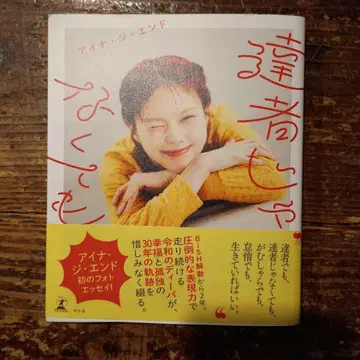 アイナ・ジ・エンド
達者じゃ
なくても
達者でも、
達者じゃなくても、
がむしゃらでも、
怠惰でも、
生きていればいい。
BiSH解散から2年。
圧倒的な表現力で
走り続ける
令和のディーバが、
幸福と孤独の
30年の軌跡を
惜しみなく綴る。
アイナ・
ジ・エンド
初のフォト
エッセイ!